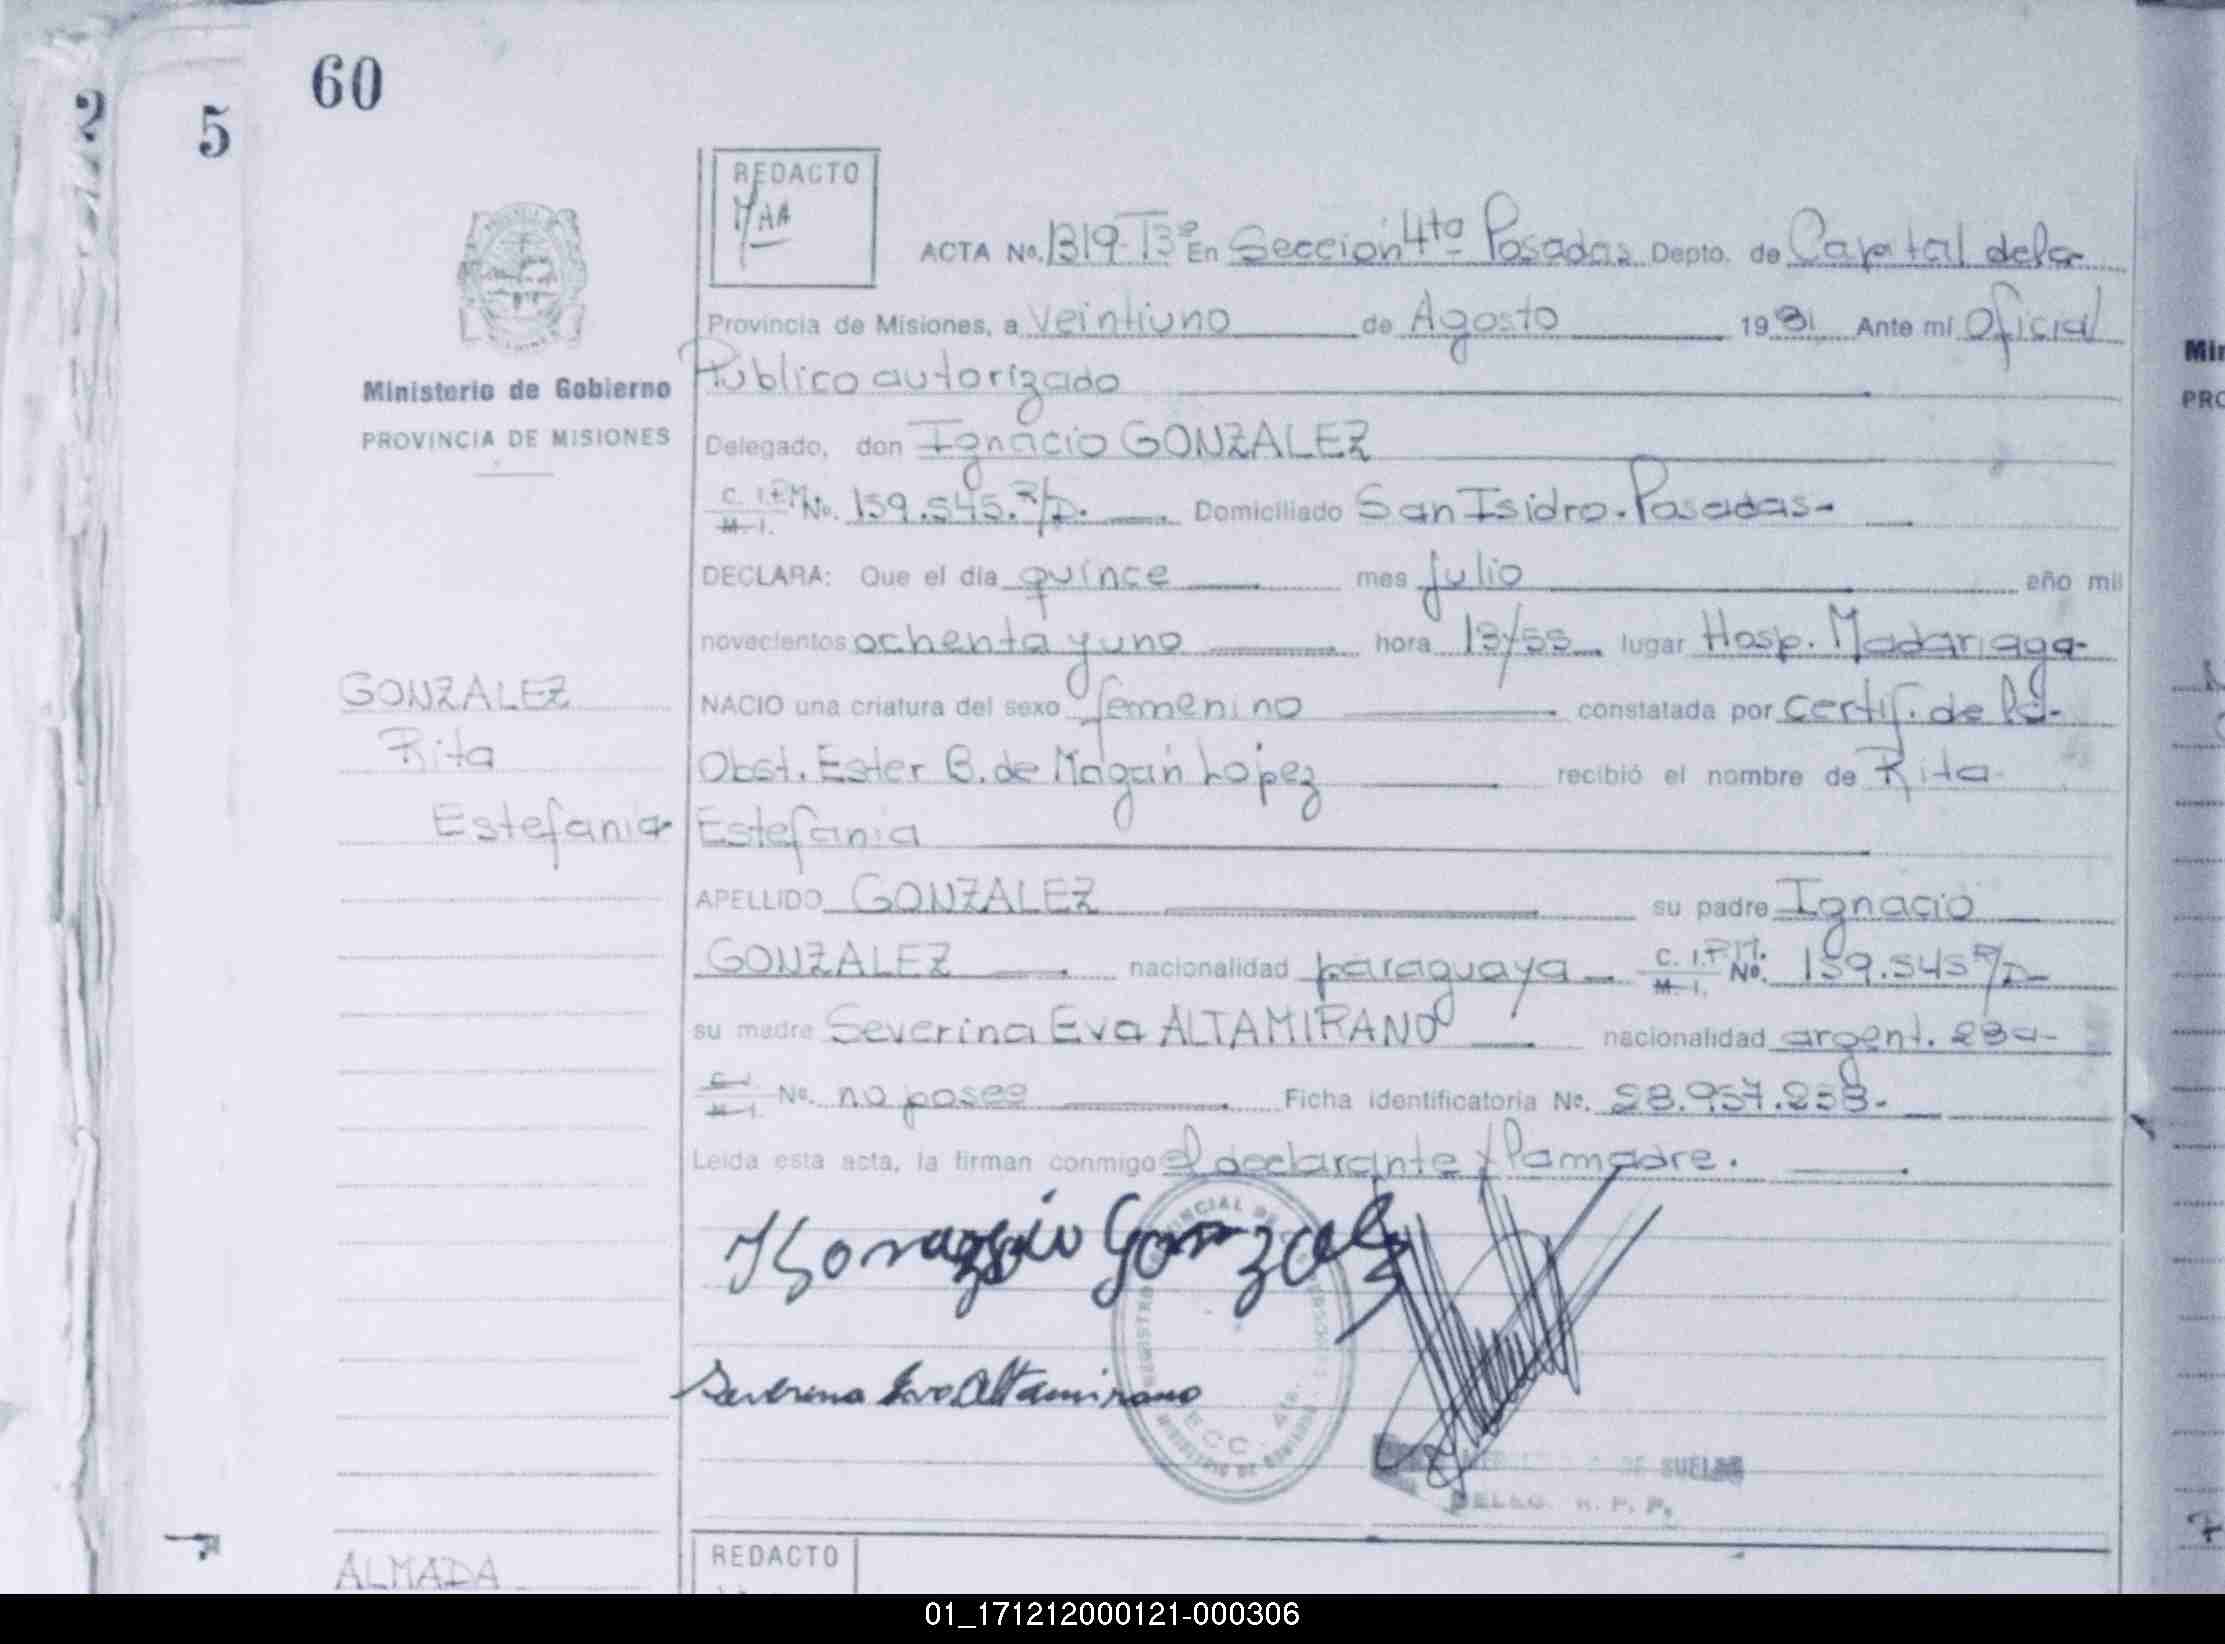 60
2
5
REDACTO
MAA
ACTA No. 1319-T3º En Sección 4ta Posadas Depto. de Capital de la
Provincia de Misiones, a veintiuno de Agosto 1981 Ante mi Oficial
Público autorizado
Ministerio de Gobierno
PROVINCIA DE MISIONES
Delegado, don Ignacio GONZALEZ
C. I.P.M. No. 159.545.R/D. Domiciliado San Isidro.Posadas-
M. I.
DECLARA: Que el día quince mes julio año mil
novecientos ochenta y uno hora 13/55 lugar Hosp. Madariaga
NACIO una criatura del sexo femenino constatada por certif. de la
Obst. Ester B. de Magan Lopez recibió el nombre de Rita
Estefania
GONZALEZ
Rita
Estefania
APELLIDO GONZALEZ su padre Ignacio
GONZALEZ nacionalidad paraguaya C. I.P.M. No. 159.545R/D
M. I.
su madre Severina Eva ALTAMIRANO nacionalidad argent. 23a-
C. I.
M. I. No. no posee Ficha identificatoria No. 28.957.258-
Leida esta acta, la firman conmigo el declarante y la madre.
Gonzalez
Severina Eva Altamirano
REGISTRO PROVINCIAL DE
MINISTERIO DE GOBIERNO
DE SUELDO
DELEG. R. P. P.
ALMADA
REDACTO
Min
PRO
01_171212000121-000306